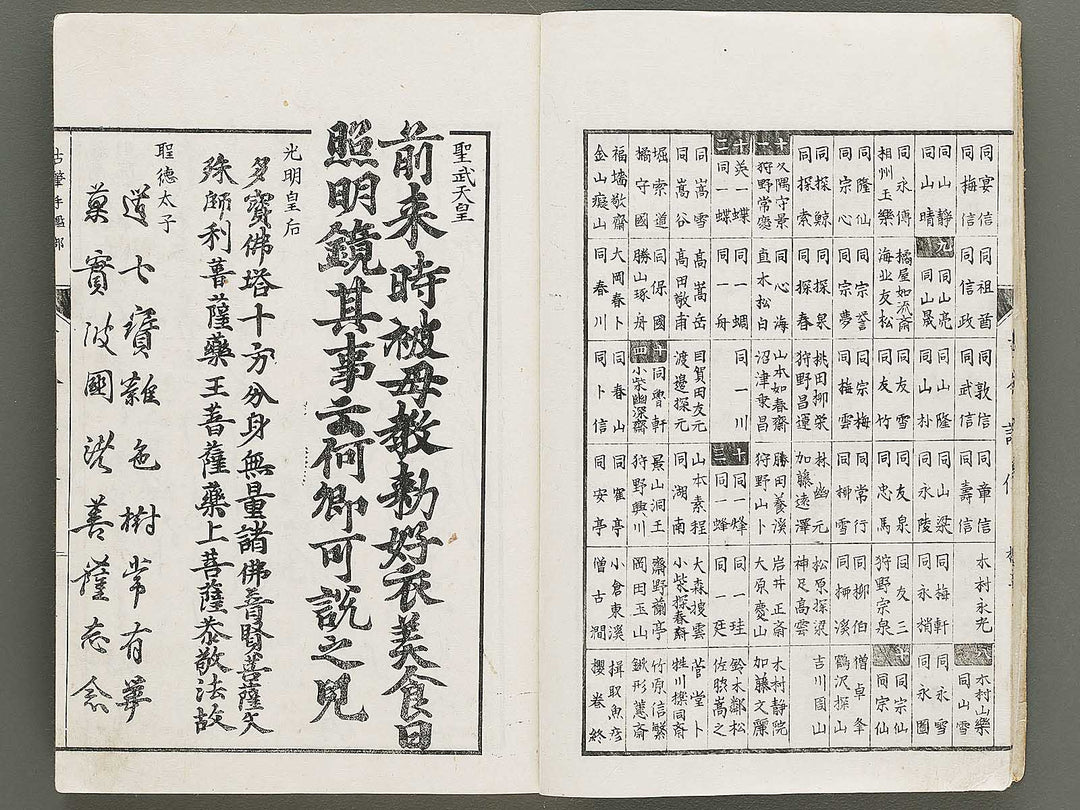 同宴信 同祖酋 同敦信 同章信 木村永光 木村山樂
同梅信 同信政 同武信 同壽信 同山雪
同山靜 九 同山亮 同山隆 同山梁 同梅軒 同永雪
同山晴 同山晟 同山朴 同永陵 同永梢 同永園
同永傳 橘屋如流齋 同友雪 同友泉 同友三 同宗仙
相州玉樂 海北友松 同友竹 同忠馬 狩野宗泉 同宗仙
同隆仙 同宗誉 同宗梅 同常行 同柳伯 僧卓峯
同宗心 同宗夢 同梅雲 同柳雪 同柳溪 鶴沢探山
同探鯨 同探泉 桃田柳栄 林幽元 松原探梁 吉川園山
同探索 同探春 狩野昌運 加藤遠澤 神足高雲
十一 久隅守景 同心海 山本如春齋 勝田養溪 岩井正斎 木村静院
狩野常慶 直木松白 沼津乗昌 狩野山卜 大原慶山 加藤文麗
十二 英一蝶 同一蜩 同一川 十三 同一烽 同一珪 鈴木鄰松
同一蝶 同一舟 同一蜂 同一廷 佐脇嵩之
同嵩雪 高嵩岳 目賀田友元 山本素程 大森捜雲 菅堂卜
同嵩谷 高田敬甫 渡邉探元 同湖南 小柴探春齋 牲川撲同斎
堀索道 同保國 十四 同曽軒 景山洞玉 齋野蘭亭 竹原信繁
橘守國 勝山琢舟 小柴幽深齋 狩野興川 岡田玉山 鍬形蕙斎
福墻敬齋 大岡春卜 同春山 同寉亭 小倉東溪 揖取魚彦
金山癡山 同春川 同卜信 同安亭 僧古澗 櫻巻終
聖武天皇
前来時被母教勅好衣美食曰
照明鏡其事云何卿可説之兒
光明皇后
多寶佛塔十方分身無量諸佛普賢菩薩文
殊師利菩薩藥王菩薩藥上菩薩恭敬法故
聖德太子
道七寶雜色樹常有華
菓實彼國諸善薩志念